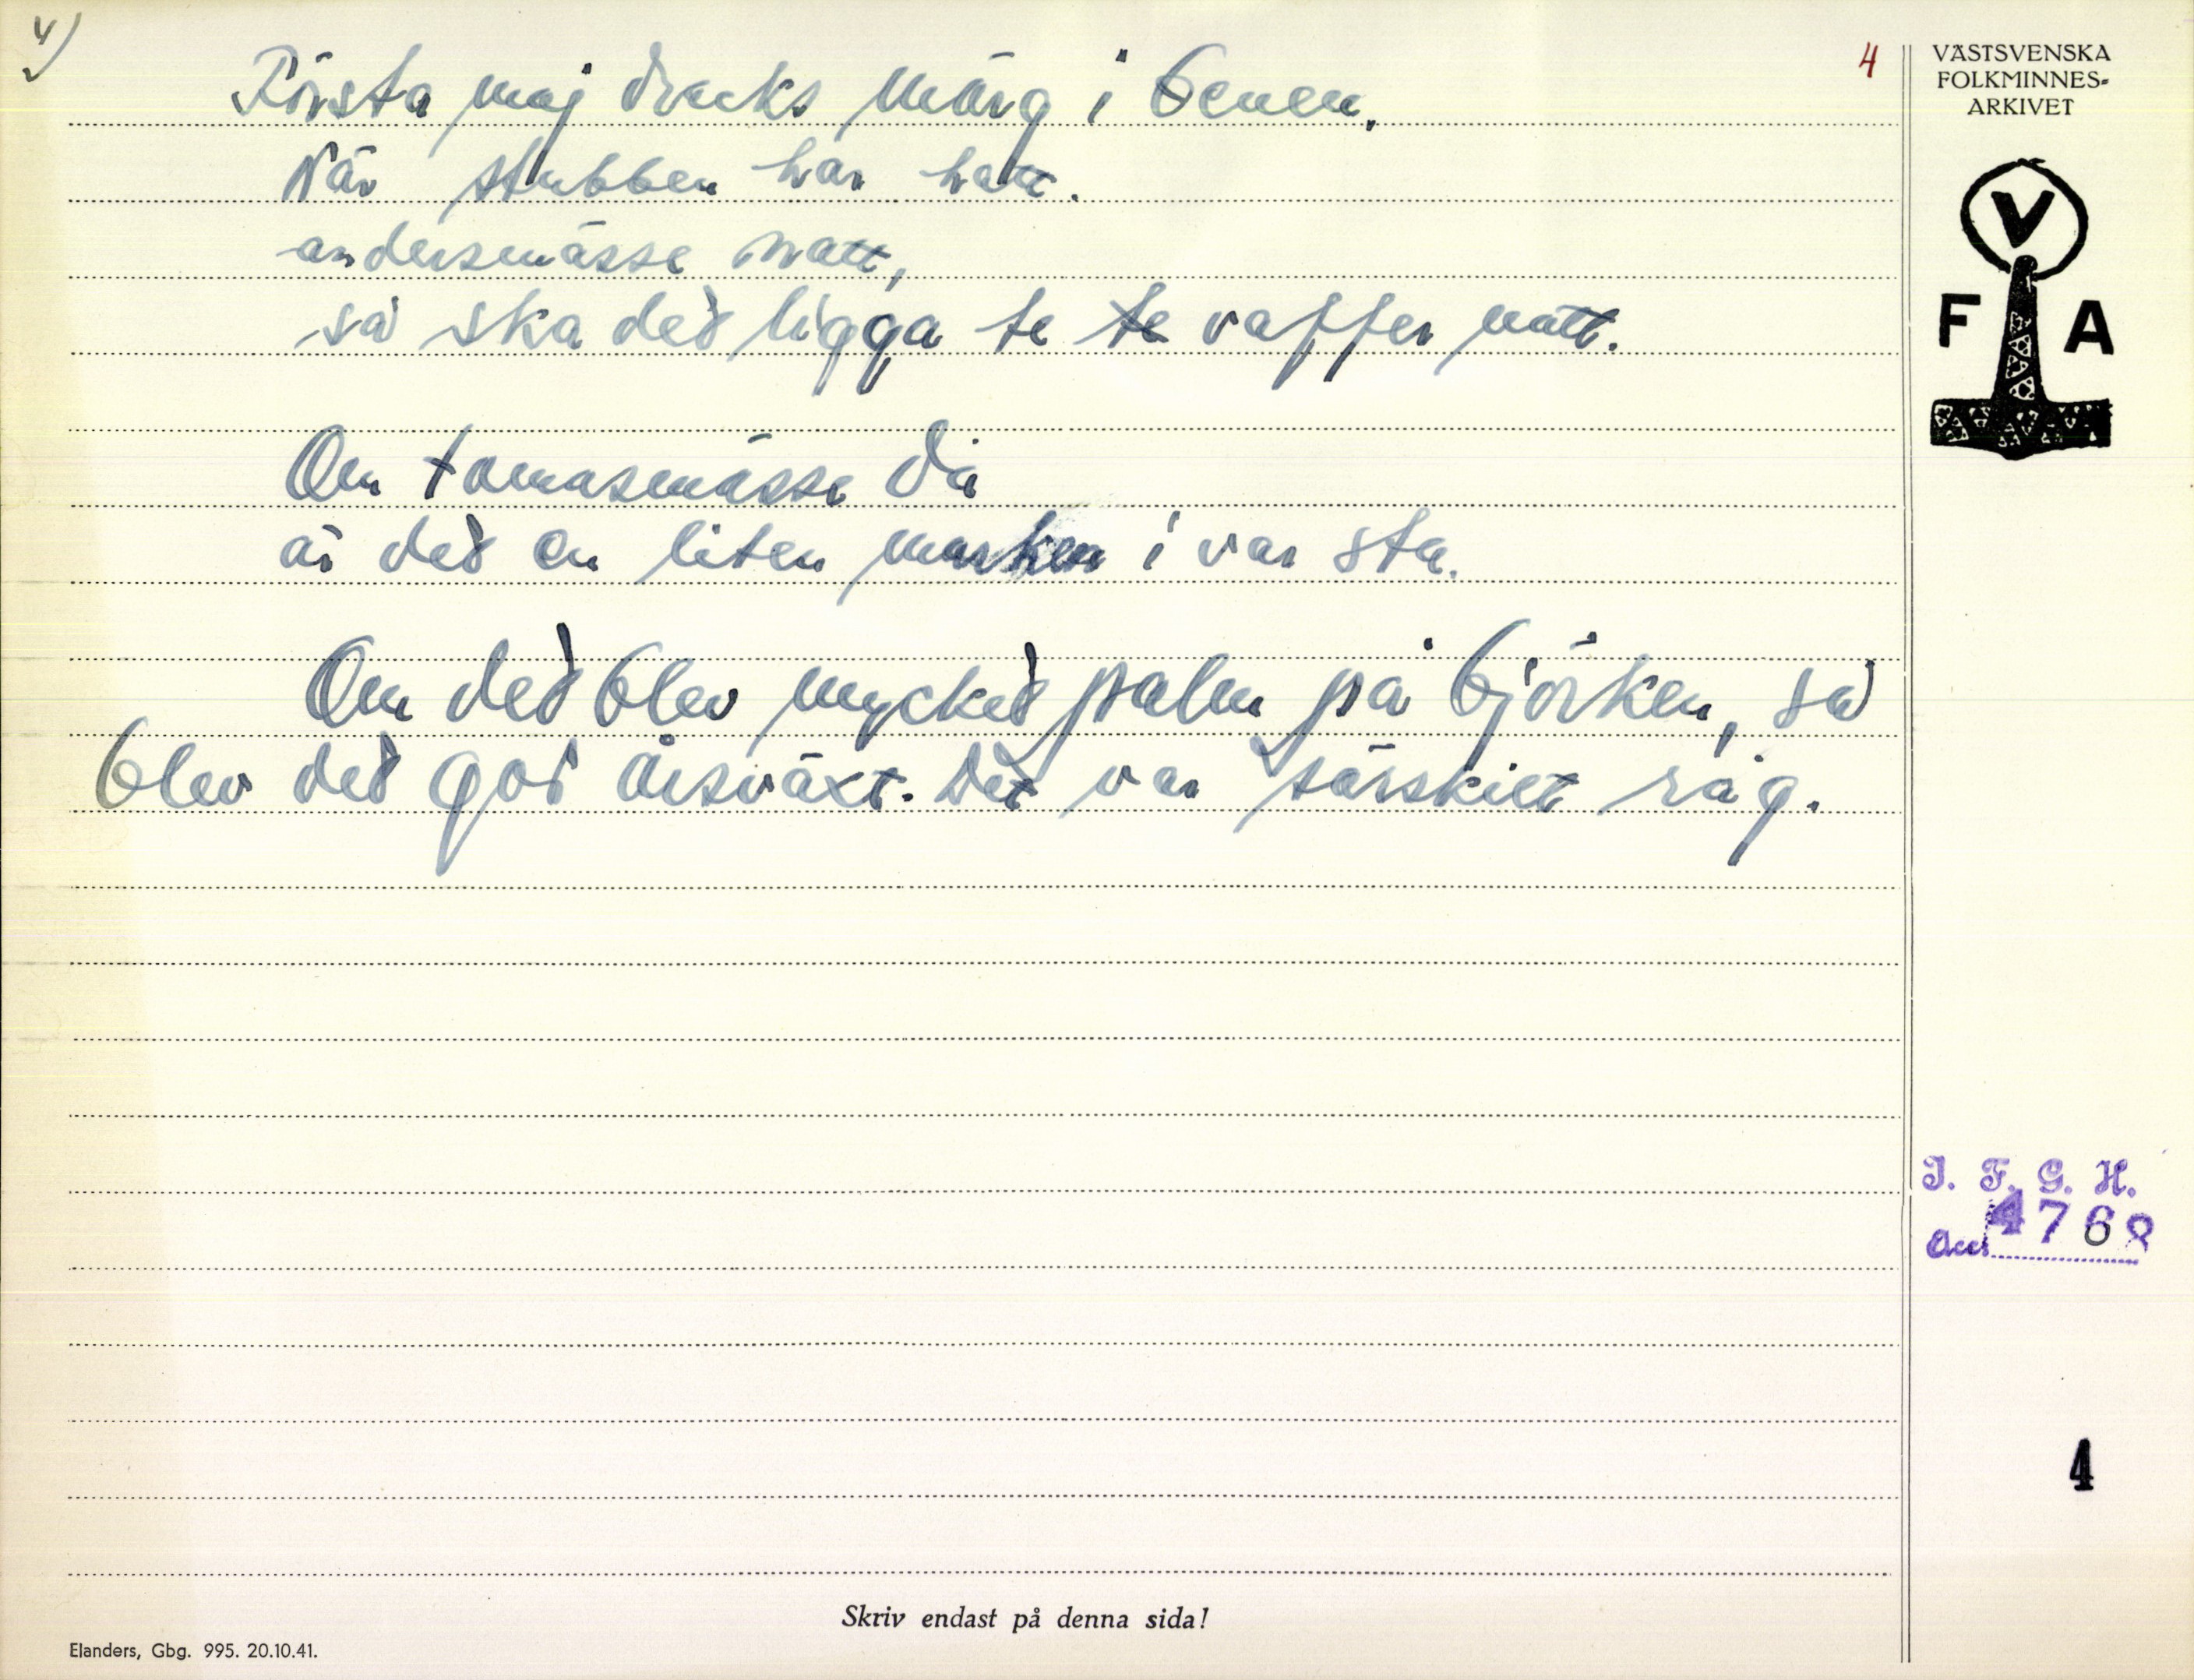 4)
4
Första maj dracks märg i benen.
När stubben har hatt.
andersmässe natt,
så ska ded ligga te te vaffer natt.
Om tomasmässe da
är ded en liten marken i var sta.
Om ded blev mycked palm på björken, så
blev ded god årsväxt. Det var särskilt råg.
VÄSTSVENSKA
FOLKMINNES-
ARKIVET
V
F A
I. F. G. H.
Acc. 4768
4
Skriv endast på denna sida!
Elanders, Gbg. 995. 20.10.41.